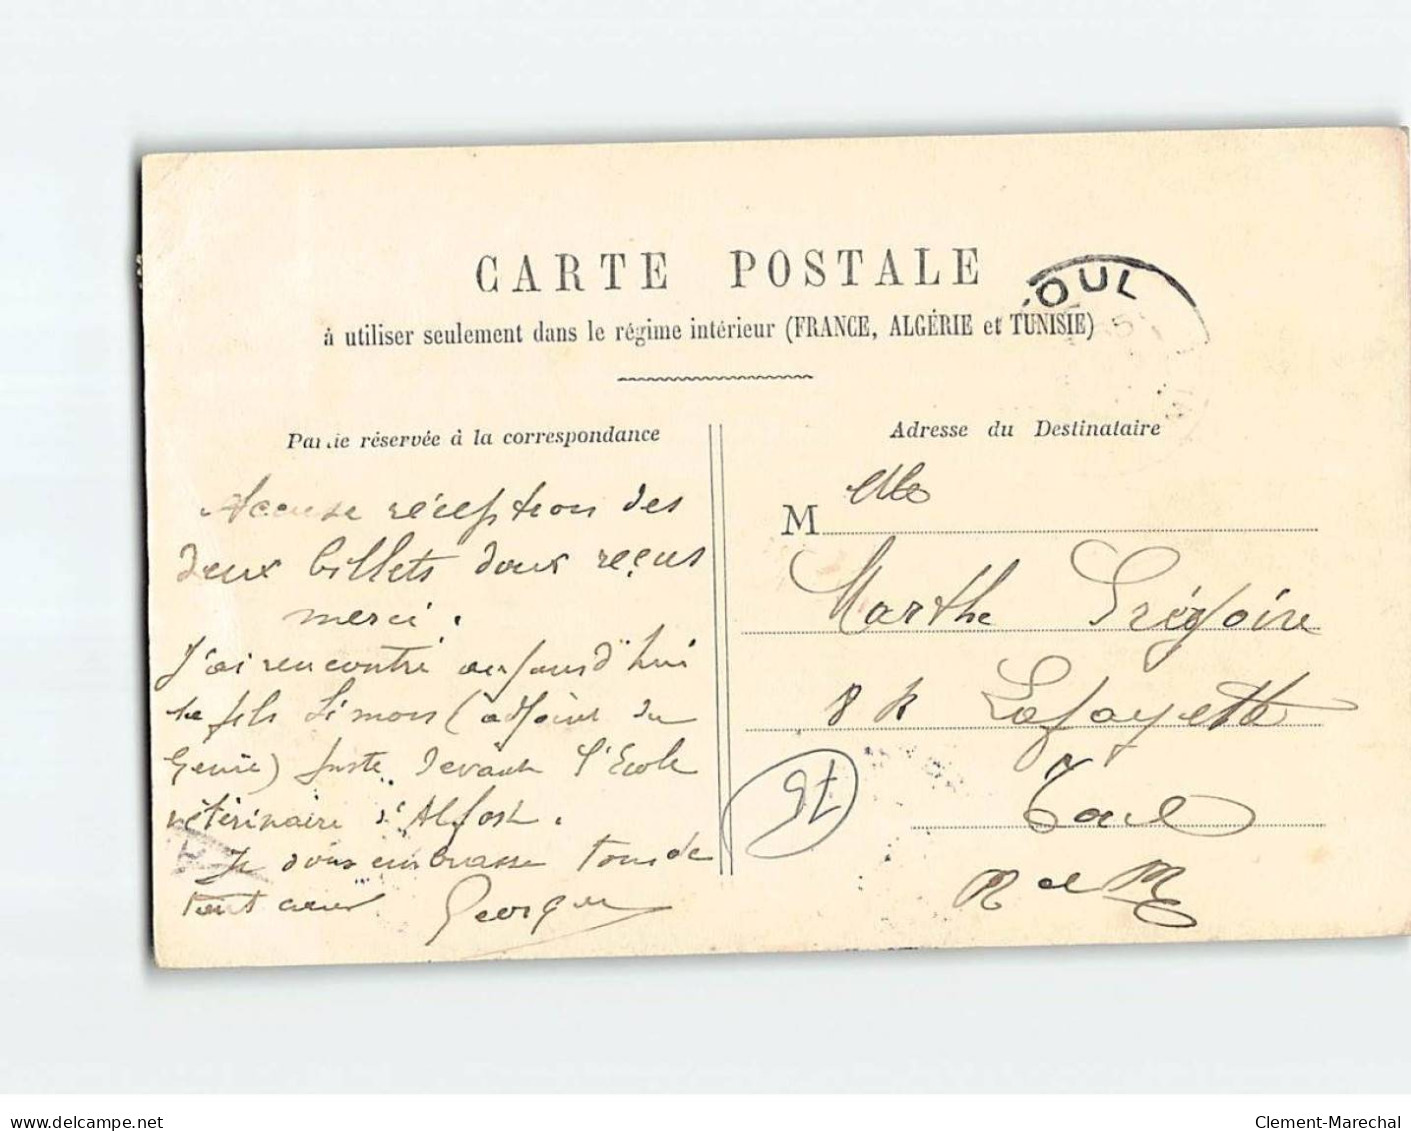 CARTE POSTALE
à utiliser seulement dans le régime intérieur (FRANCE, ALGÉRIE et TUNISIE)
TOUL
Partie réservée à la correspondance
Accuse réception des
deux billets doux reçus
merci.
J'ai rencontré aujourd'hui
le fils Simon (adjoint du
Génie) juste devant l'Ecole
vétérinaire d'Alfort.
Je vous embrasse tous de
tout cœur Georges
Adresse du Destinataire
M elle
Marthe Grégoire
8 R Lafayette
Toul
M et M
delcampe.net
Clement-Marechal